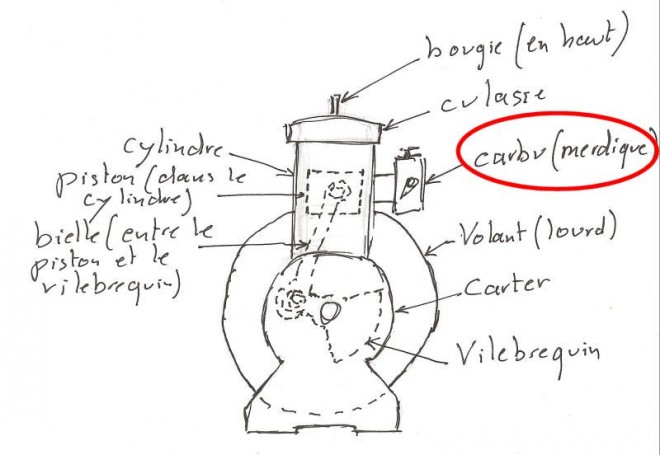 bougie (en haut)
culasse
cylindre
piston (dans le
cylindre)
bielle (entre le
piston et le
vilebrequin)
carbu (merdique)
Volant (lourd)
Carter
Vilebrequin